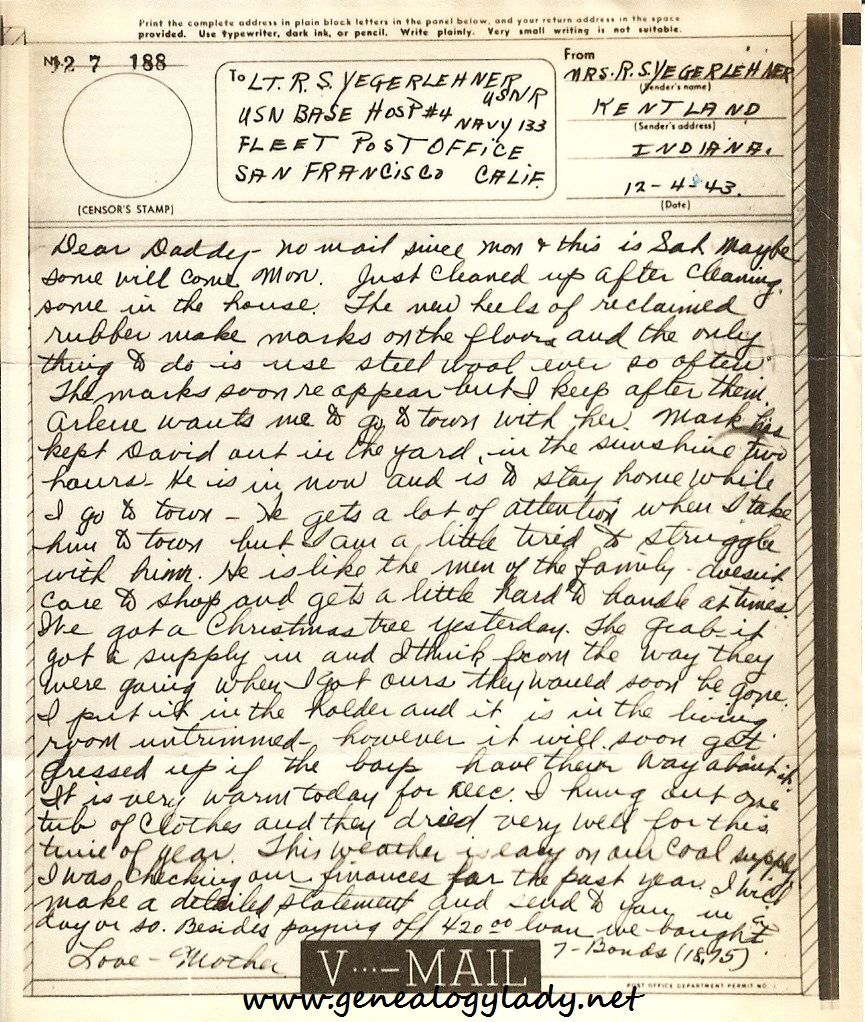 Print the complete address in plain black letters in the panel below, and your return address in the space
provided. Use typewriter, dark ink, or pencil. Write plainly. Very small writing is not suitable.
No. 27 188
(CENSOR'S STAMP)
To LT. R. S. YEGERLEHNER
USNR
USN BASE HOSP #4
NAVY 133
FLEET POST OFFICE
SAN FRANCISCO CALIF.
From
MRS. R. S. YEGERLEHNER
(Sender's name)
KENTLAND
(Sender's address)
INDIANA.
12-4-43.
(Date)
Dear Daddy - no mail since mon & this is Sat. Maybe
some will come Mon. Just cleaned up after cleaning
some in the house. The new heels of reclaimed
rubber make marks on the floors and the only
thing to do is use steel wool ever so often.
The marks soon reappear but I keep after them.
Arlene wants me to go to town with her. Mark has
kept David out in the yard, in the sunshine two
hours - He is in now and is to stay home while
I go to town - He gets a lot of attention when I take
him to town but I am a little tired to struggle
with him. He is like the men of the family - doesn't
care to shop and gets a little hard to handle at times.
We got a Christmas tree yesterday. The Grab it
got a supply in and I think from the way they
were going when I got ours they would soon be gone.
I put it in the holder and it is in the living
room untrimmed - however it will soon get
dressed up if the boys have their way about it.
It is very warm today for Dec. I hung out one
tub of clothes and they dried very well for this
time of year. This weather is easy on our coal supply.
I was checking our finances for the past year. I will
make a detailed statement and send to you in a
day or so. Besides paying off 420 00 loan we bought
7 - Bonds (18.75)
Love - Mother
V···—MAIL
POST OFFICE DEPARTMENT PERMIT NO.
www.genealogylady.net